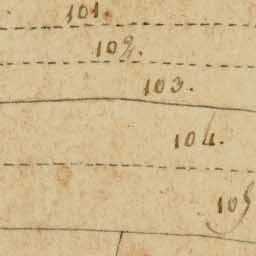 101.
102.
103.
104.
105